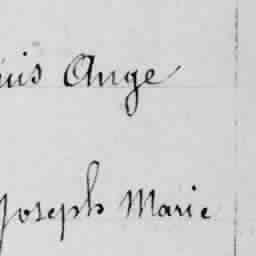 uis Ange
Joseph Marie